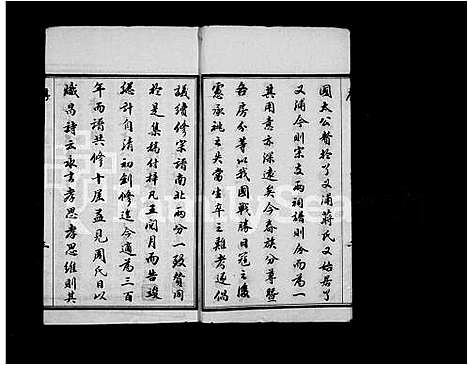 國太公督於了又浦蔣氏又始居了
又浦今則宗支兩祠譜則合而為一
其用意亦深遠矣今春族分尊暨
各房分等以我國戰勝日寇之後
憲承祧之失當生卒之難考遂倡
議續修宗譜南北兩分一致贊同
於是集稿付梓凡五閱月而告竣
總計自清初創修迄今適為三百
年而譜共修十屆益見周氏日以
熾昌詩云永言孝思孝思維則其